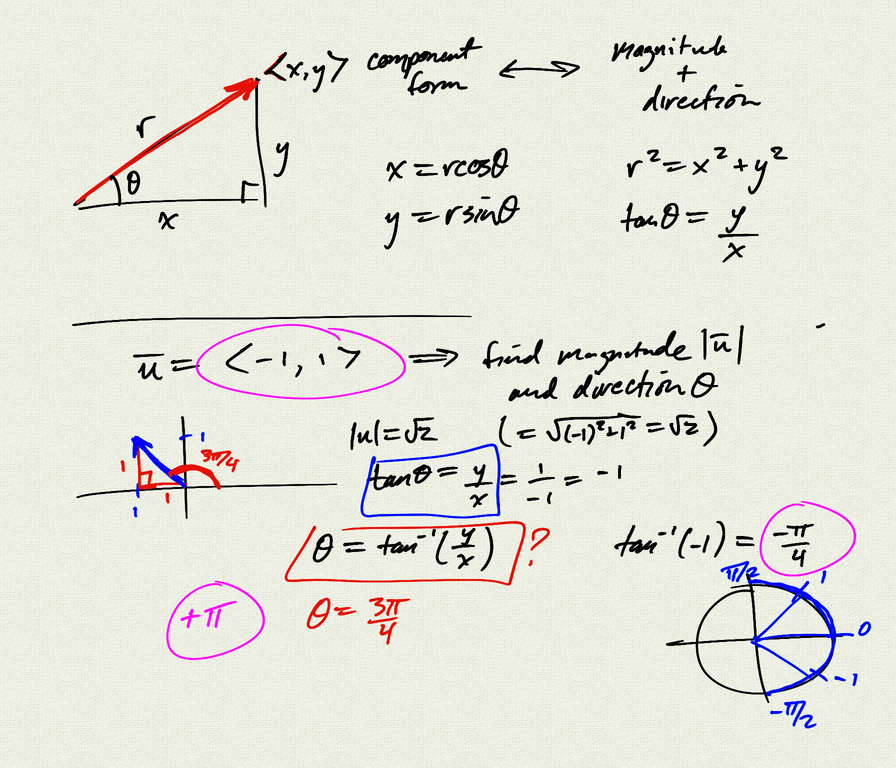 <x,y> component form ⟷ magnitude + direction
r
θ
y
x
x = rcosθ
r² = x² + y²
y = rsinθ
tanθ = y/x
u̅ = <-1, 1> ⟹ find magnitude |u̅|
and direction θ
|u| = √2 (= √((-1)²+1²) = √2)
1
3π/4
1
1
1
tanθ = y/x = 1/-1 = -1
θ = tan⁻¹(y/x) ?
tan⁻¹(-1) = -π/4
+π
θ = 3π/4
π/2
1
0
-1
-π/2